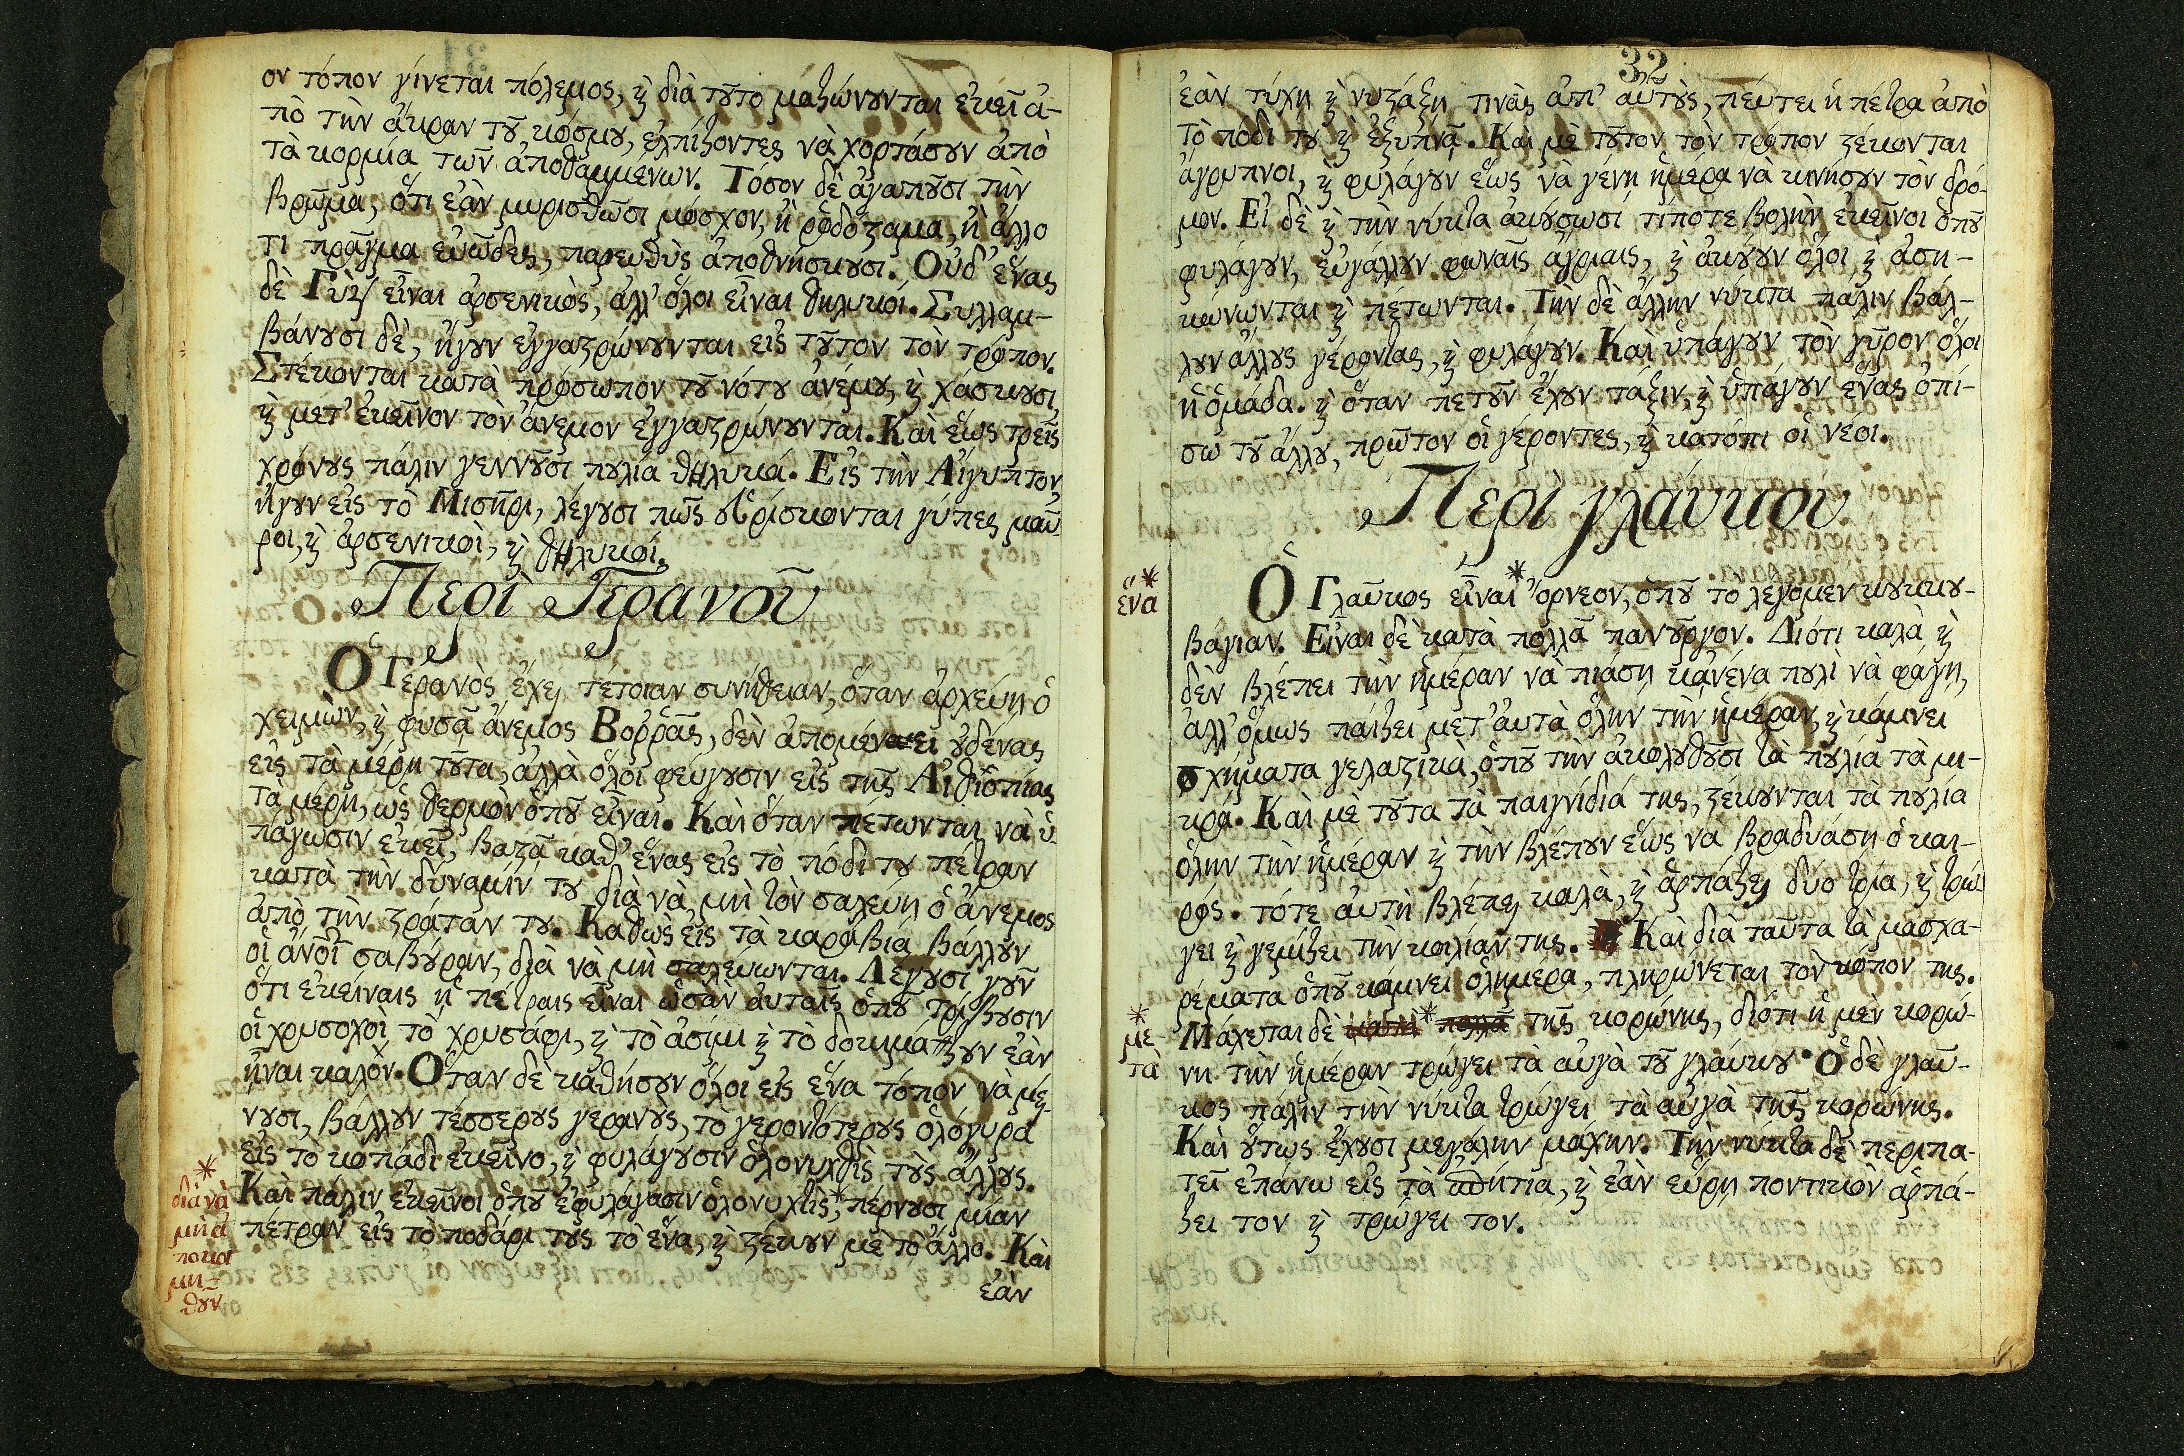 ον τόπον γίνεται πόλεμος, ϗ διὰ τȣ͂το μαζώνȣνται ἐκεῖ ἀ-
πὸ τὴν ἄκραν τȣ͂ κόσμȣ, ἐλπίζοντες νὰ χορτάσȣν ἀπὸ
τὰ κορμία τῶν ἀποθαμμένων. Τόσον δὲ ἀγαπȣ͂σι τὴν
βρῶμα, ὅτι ἐὰν μυρισθῶσι μόσχον, ἢ ῥόδόσταμα, ἢ ἄλλο
τι πρᾶγμα εὐῶδες, παρευθὺς ἀποθνήσκȣσι. Οὐδ' ἕνας
δὲ Γὺψ εἶναι ἀρσενικὸς, ἀλλ' ὅλοι εἶναι θηλυκοί. Συλλαμ-
βάνȣσι δὲ, ἤγȣν ἐγγαστρώνȣνται εἰς τȣ͂τον τὸν τρόπον.
Στέκονται κατὰ πρόσωπον τȣ͂ νότȣ ἀνέμȣ, ϗ χάσκȣσι,
ϗ μετ' ἐκεῖνον τὸν ἄνεμον ἐγγαστρώνȣνται. Καὶ ἕως τρεῖς
χρόνȣς πάλιν γεννȣ͂σι πȣλία θηλυκά. Εἰς τὴν Αἴγυπτον,
ἤγȣν εἰς τὸ Μισῆρι, λέγȣσι πῶς εὑρίσκονται γύπες μαῦ
ροι, ϗ ἀρσενικοὶ, ϗ θηλυκοί.
Περὶ Γερανοῦ
Ὁ Γερανὸς ἔχει τέτοιαν συνήθειαν, ὅταν ἀρχεύῃ ὁ
χειμὼν, ϗ φυσᾷ ἄνεμος Βοῤῥᾶς, δὲν ἀπομένει ȣ̓δένας
εἰς τὰ μέρη τȣ͂τα, ἀλλὰ ὅλοι φεύγȣσιν εἰς τῆς Αἰθιοπίας
τὰ μέρη, ὡς θερμὸν ὁπȣ͂ εἶναι. Καὶ ὅταν πέτωνται νὰ ὑ-
πάγωσιν ἐκεῖ, βαστᾷ καθ' ἕνας εἰς τὸ πόδι τȣ πέτραν
κατὰ τὴν δύναμίν τȣ διὰ νὰ μὴ τὸν σαλεύῃ ὁ ἄνεμος
ἀπὸ τὴν στράταν τȣ. Καθὼς εἰς τὰ καράβια βάλλȣν
οἱ ἄνοι σαβȣ́ραν, διὰ νὰ μὴ σαλεύωνται. Λέγȣσι γȣ͂ν
ὅτι ἐκείναις ᾑ πέτραις εἶναι ὡσὰν αὐταῖς ὁπȣ͂ τρίβȣσιν
οἱ χρυσοχοὶ τὸ χρυσάφι, ϗ τὸ ἀσίμι ϗ τὸ δοκιμάζȣν ἐὰν
ἦναι καλὸν. Ὅταν δὲ καθήσȣν ὅλοι εἰς ἕνα τόπον νὰ μεί-
νȣσι, βάλλȣν τέσσερȣς γερανȣ̀ς, τȣ̀ γεροντότερȣς ὁλόγυρα
εἰς τὸ κοπάδι ἐκεῖνο, ϗ φυλάγȣσιν ὁλονυχθὶς τȣ̀ς ἄλλȣς.
Καὶ πάλιν ἐκεῖνοι ὁπȣ ἐφυλάγασιν ὁλονυχτὶς,* πέρνȣσι μίαν
πέτραν εἰς τὸ ποδάρι τȣς τὸ ἕνα, ϗ στέκȣν μὲ τὸ ἄλλο. Καὶ
ἐὰν
*
διὰ νὰ
μὴ ἀ
ποκοι
μη-
θȣν
32
ἐὰν τύχῃ ϗ νυστάξῃ τινὰς ἀπ' αὐτȣ̀ς, πέφτει ἡ πέτρα ἀπὸ
τὸ πόδι τȣ ϗ ἐξυπνᾷ. Καὶ μὲ τȣ͂τον τὸν τρόπον στέκονται
ἄγρυπνοι, ϗ φυλάγȣν ἕως νὰ γένῃ ἡμέρα νὰ κινήσȣν τὸν δρό-
μον. Εἰ δὲ ϗ τὴν νύκτα ἀκȣ́σωσι τίποτε βολὴν ἐκεῖνοι ὁπȣ͂
φυλάγȣν, εὐγάλλȣν φωναῖς ἄγριαις, ϗ ἀκȣ́ȣν ὅλοι ϗ ἀση-
κώνωνται ϗ πέτωνται. Τὴν δὲ ἄλλην νύκτα πάλιν βάλ-
λȣν ἄλλȣς γέροντας, ϗ φυλάγȣν. Καὶ ὑπάγȣν τὸν γῦρον ὅλοι
ἡ ὁμάδα. ϗ ὅταν πετȣ͂ν ἔχȣν τάξιν, ϗ ὑπάγȣν ἕνας ὀπί-
σω τȣ͂ ἄλλȣ, πρῶτον οἱ γέροντες, ϗ κατόπι οἱ νέοι.
Περὶ γλαύκου
*
ἕνα
Ὁ Γλαῦκος εἶναι* ὄρνεον, ὁπȣ͂ τὸ λέγομεν κȣκκȣ-
βάγιαν. Εἶναι δὲ κατὰ πολλὰ πανȣ͂ργον. Διότι καλὰ ϗ
δὲν βλέπει τὴν ἡμέραν νὰ πιάσῃ κανένα πȣλὶ νὰ φάγῃ,
ἀλλ' ὅμως παίζει μετ' αὐτὰ ὅλην τὴν ἡμέραν, ϗ κάμνει
σχήματα γελαστικὰ, ὁπȣ͂ τὴν ἀκολȣθȣ͂σι τὰ πȣλία τὰ μι-
κρά. Καὶ μὲ τȣ͂τα τὰ παιγνίδιά της, στέκονται τὰ πȣλία
ὅλην τὴν ἡμέραν ϗ τὴν βλέπȣν ἕως νὰ βραδυάσῃ ὁ και-
ρός. τότε αὐτὴ βλέπει καλὰ, ϗ ἁρπάζει δύο τρία, ϗ τρώ-
γει ϗ γεμίζει τὴν κοιλίαν της. Καὶ διὰ ταῦτα τὰ μασχα-
ρέματα ὁπȣ͂ κάμνει ὁλημέρα, πληρώνεται τὸν κόπον της.
*
με
τὰ
Μάχεται δὲ κατὰ* πολλὰ τῆς κορώνης, διότι ἡ μὲν κορώ-
νη τὴν ἡμέραν τρώγει τὰ αὐγὰ τȣ͂ γλαύκȣ. Ὁ δὲ γλαῦ-
κος πάλιν τὴν νύκτα τρώγει τὰ αὐγὰ τῆς κορώνης.
Καὶ ȣ̔́τως ἔχȣσι μεγάλην μάχην. Τὴν νύκτα δὲ περιπα-
τεῖ ἐπάνω εἰς τὰ σπήτια, ϗ ἐὰν εὕρῃ ποντικὸν ἁρπά-
ζει τον ϗ τρώγει τον.